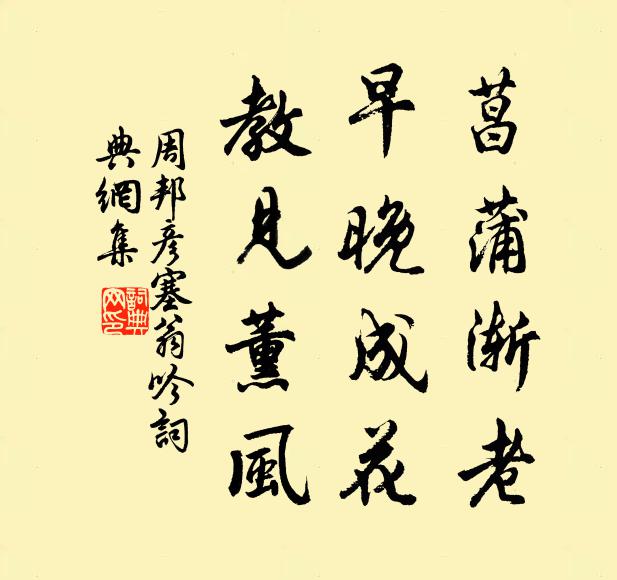 菖蒲漸老
早晚成花
教見薰風
周邦彦塞翁吟詞
典網集
詞典網印